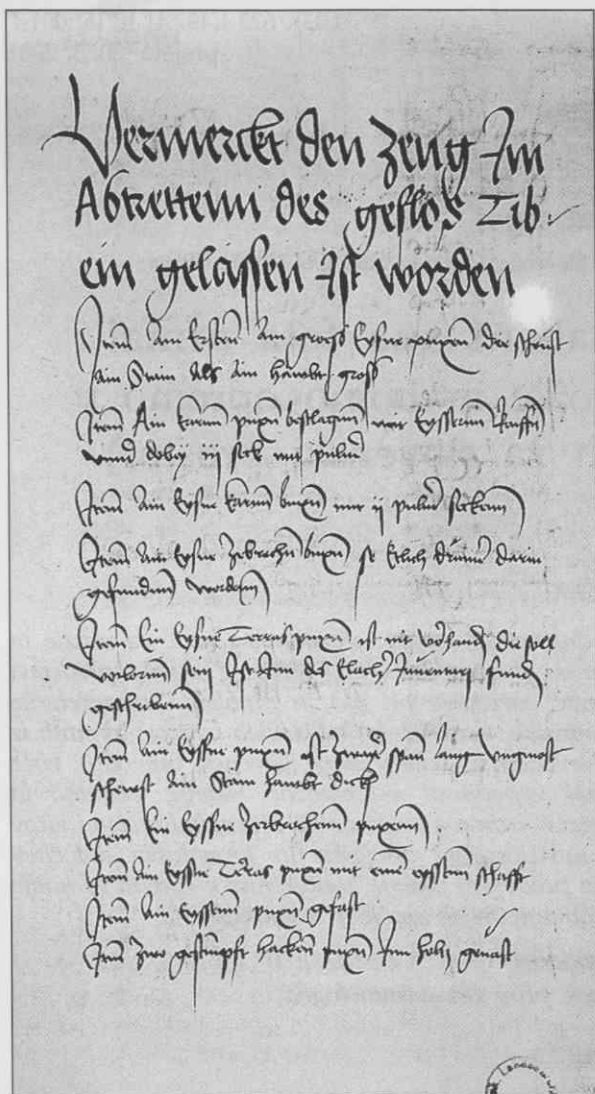 Vermerckt den Zeug Im
Abtrettenn des geslos Tib
ein gelassen Ist worden
Item Am Ersten Ain gross Eysne puxn die scheust
ain Stain Als Ain haubt gross
Item Ain karnn puxn beslagnn mit Eyssernn Raiffn
vnnd dobey iij seck mit puluer
Item Ain Eysne karnn buxn mit ij puluer seckenn
Item Ain Eysne zebrochn buxn se Etlich drumer darin
gefundenn wordenn
Item Ein Eysne Terras puxn ist nit vorhandn die soll
verlornn sein Ist Inn des Inventary fundn
geschribenn
Item Ain Eyssne puxn ist zwayer spann lang vngeuast
scheust Ain Stain haubt dick
Item Ein Eyssne zerbrochenn puxenn
Item Ain Eyssne Terras puxn mit einem eyssnen schafft
Item Ain Eyssenn puxn gefast
Item zwo gestimpfft hacken puxn Inn holtz geuast
Landes